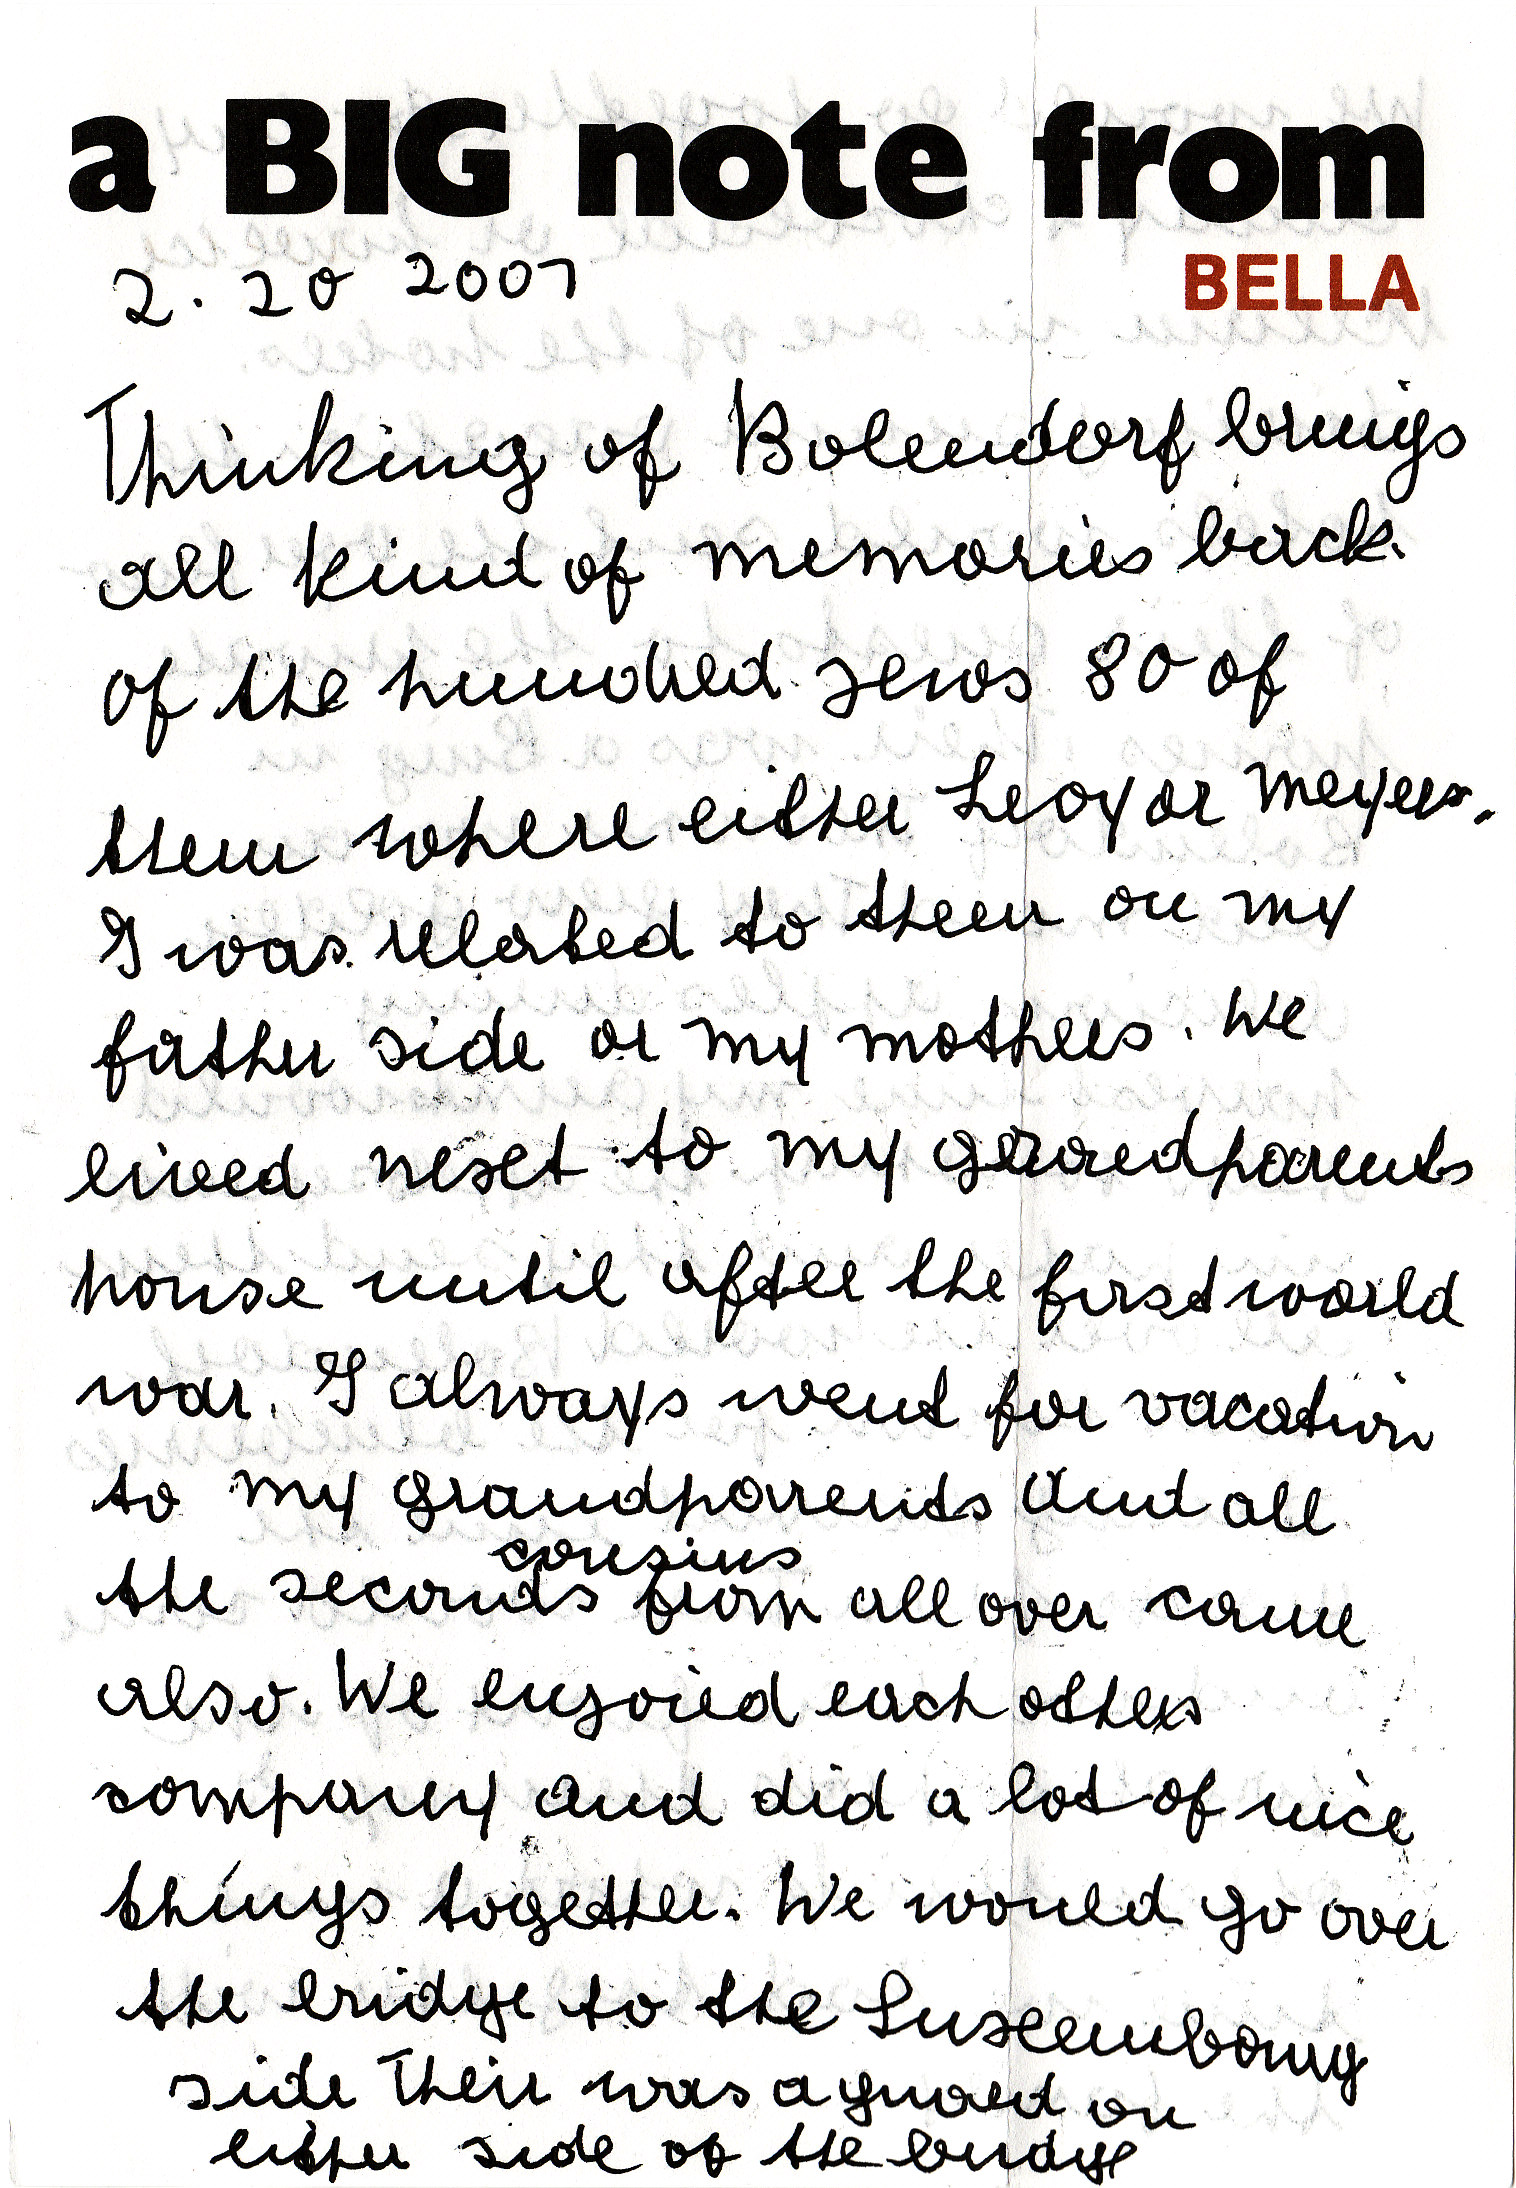 a BIG note from
BELLA
2. 20 2001
Thinking of Bolendorf brings
all kind of memories back.
Of the hundred Jews 80 of
them where either Levy or Meyers.
I was related to them on my
father side or my mothers. We
lived next to my grandparents
house until after the first world
war. I always went for vacation
to my grandparents And all
cousins
the seconds from all over came
also. We enjoied each others
company And did a lot of nice
things together. We would go over
the bridge to the Luxembourg
side Their was a guard on
either side of the bridge